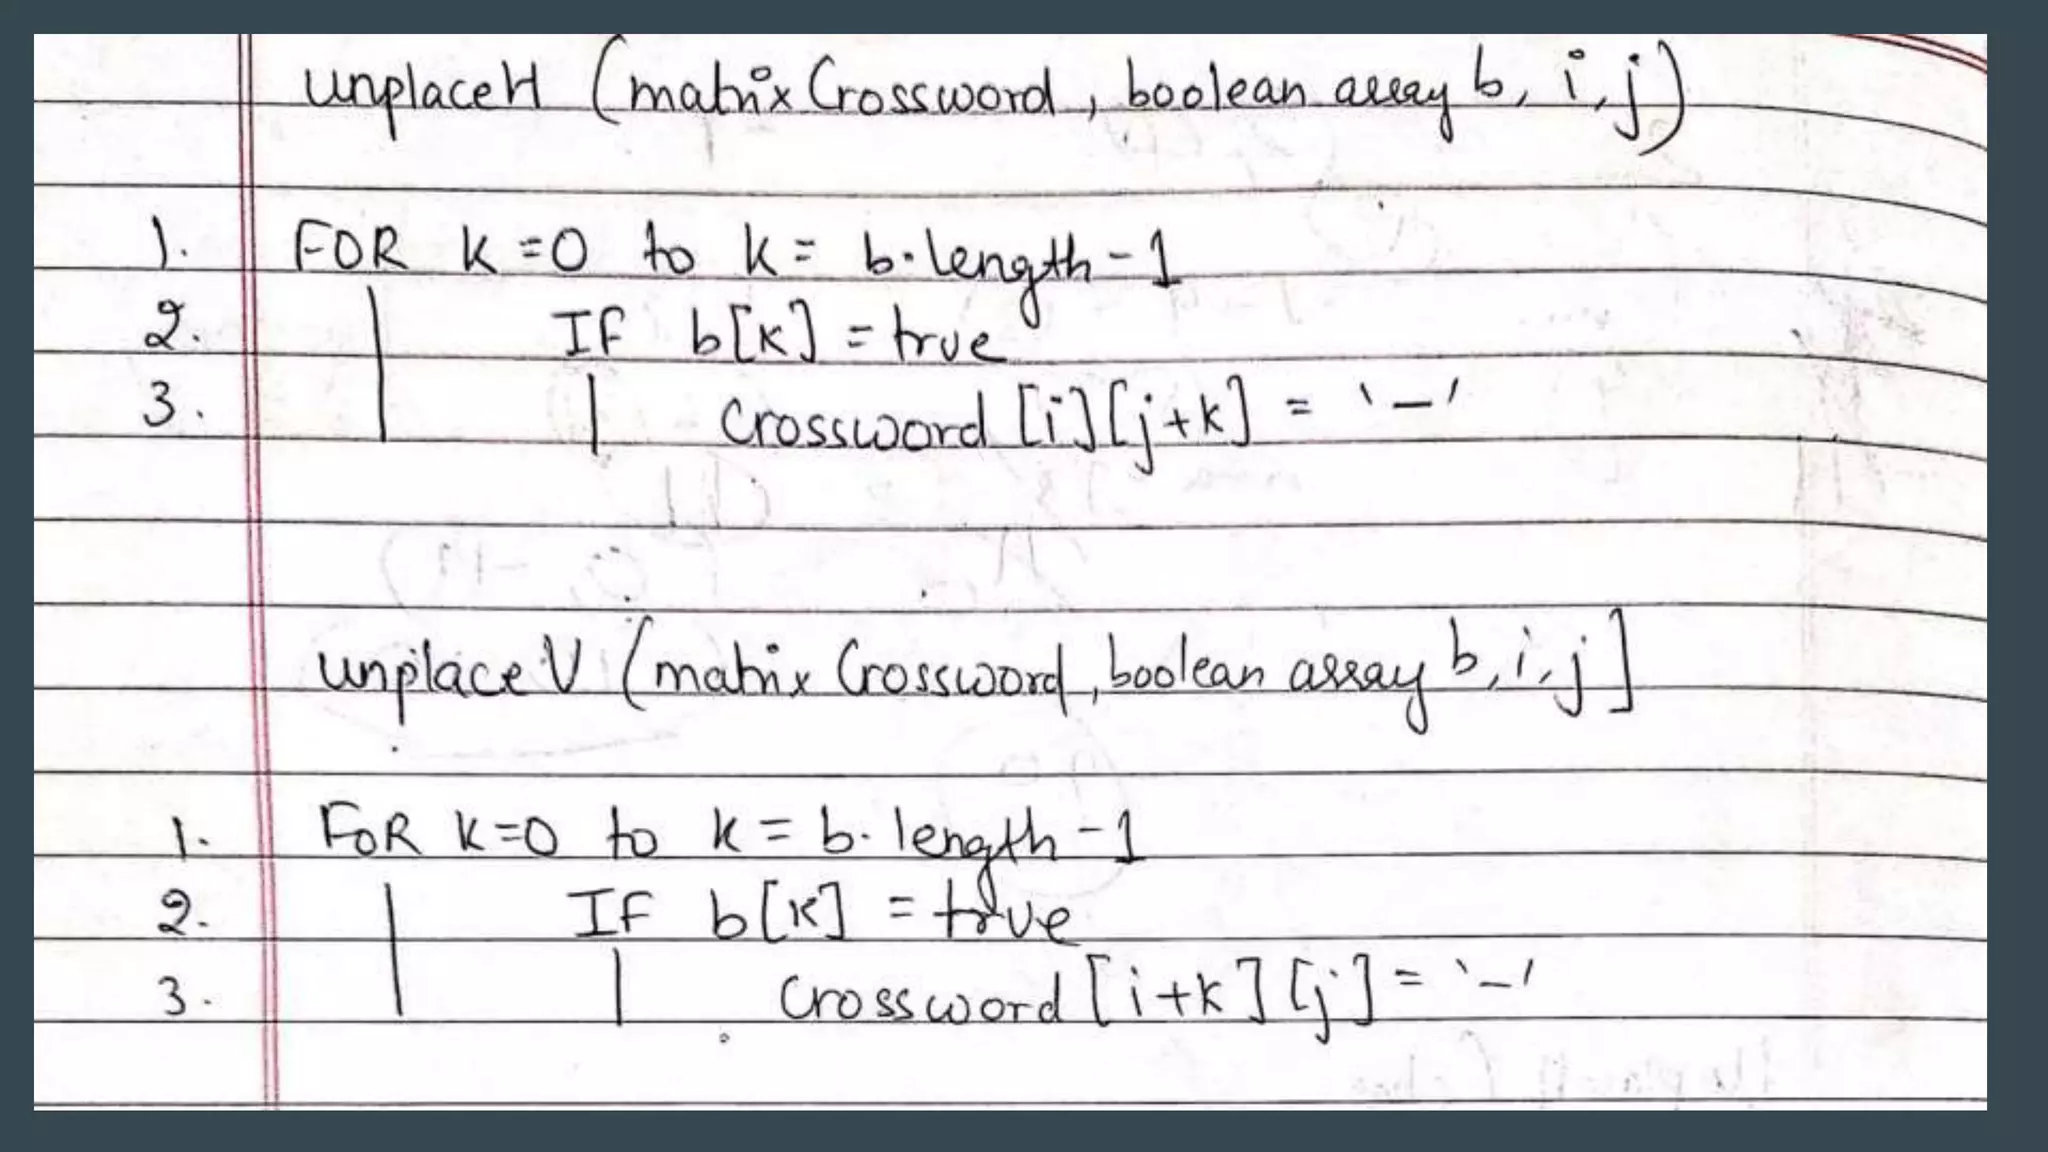 unplaceH (matrix Crossword, boolean array b, i, j)
1. FOR K=0 to K= b.length-1
2. IF b[K] = true
3. Crossword [i][j+k] = '-'
unplaceV (matrix Crossword, boolean array b, i, j]
1. FOR K=0 to K= b.length-1
2. IF b[K] = true
3. Crossword [i+k] [j] = '-'